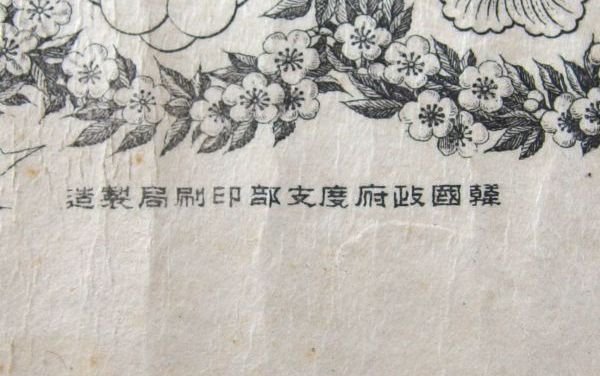 韓國政府度支部印刷局製造